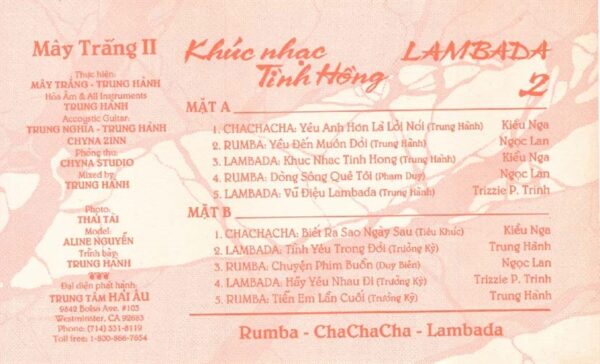 Mây Trắng II
Thực hiện:
MÂY TRẮNG - TRUNG HÀNH
Hòa Âm & All Instruments
TRUNG HÀNH
Accoystic Guitar:
TRUNG NGHĨA - TRUNG HÀNH
CHYNA ZINN
Phòng thu:
CHYNA STUDIO
Mixed by:
TRUNG HÀNH
Photo:
THÁI TÀI
Model:
ALINE NGUYỄN
Trình bày:
TRUNG HÀNH
Đại diện phát hành:
TRUNG TÂM HẢI ÂU
9842 Bolsa Ave. #103
Westminster, CA 92683
Phone: (714) 531-8119
Toll free: 1-800-866-7654
Khúc nhạc LAMBADA
Tình Hồng 2
MẶT A
1. CHACHACHA: Yêu Anh Hơn Là Lời Nói (Trung Hành) Kiều Nga
2. RUMBA: Yêu Đến Muôn Đời (Trung Hành) Ngọc Lan
3. LAMBADA: Khuc Nhac Tinh Hong (Trung Hành) Kiều Nga
4. RUMBA: Dòng Sông Quê Tôi (Phạm Duy) Ngọc Lan
5. LAMBADA: Vũ Điệu Lambada (Trung Hành) Trizzie P. Trinh
MẶT B
1. CHACHACHA: Biết Ra Sao Ngày Sau (Tiêu Khúc) Kiều Nga
2. LAMBADA: Tình Yêu Trong Đời (Trường Kỳ) Trung Hành
3. RUMBA: Chuyện Phim Buồn (Duy Biên) Ngọc Lan
4. LAMBADA: Hãy Yêu Nhau Đi (Trường Kỳ) Trizzie P. Trinh
5. RUMBA: Tiễn Em Lần Cuối (Trường Kỳ) Trung Hành
Rumba - ChaChaCha - Lambada